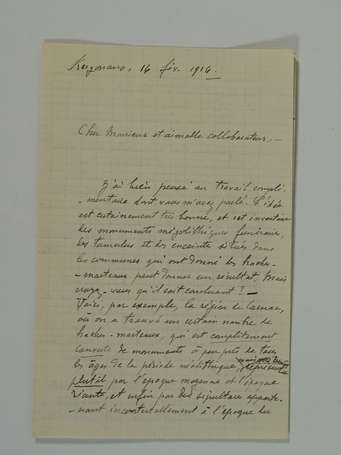 Kerzonano, 14 fév. 1916.
Cher Monsieur et aimable collaborateur, —
J'ai bien pensé au travail complé-
-mentaire dont vous m'avez parlé. L'idée
est certainement très bonne, et cet inventaire
des monuments mégalithiques funéraires,
les tumulus et les enceintes situés dans
les communes qui ont donné les haches-
-marteaux peut donner un résultat. Mais
croyez-vous qu'il soit concluant ? —
Voici, par exemple, la région de Carnac,
où on a trouvé un certain nombre de
haches-marteaux, qui est complètement
de monuments à peu près de tous
les âges de la période néolithique, représentée
plutôt par l'époque moyenne et l'époque
récente, et enfin par des sépultures apparte-
-nant incontestablement à l'époque du